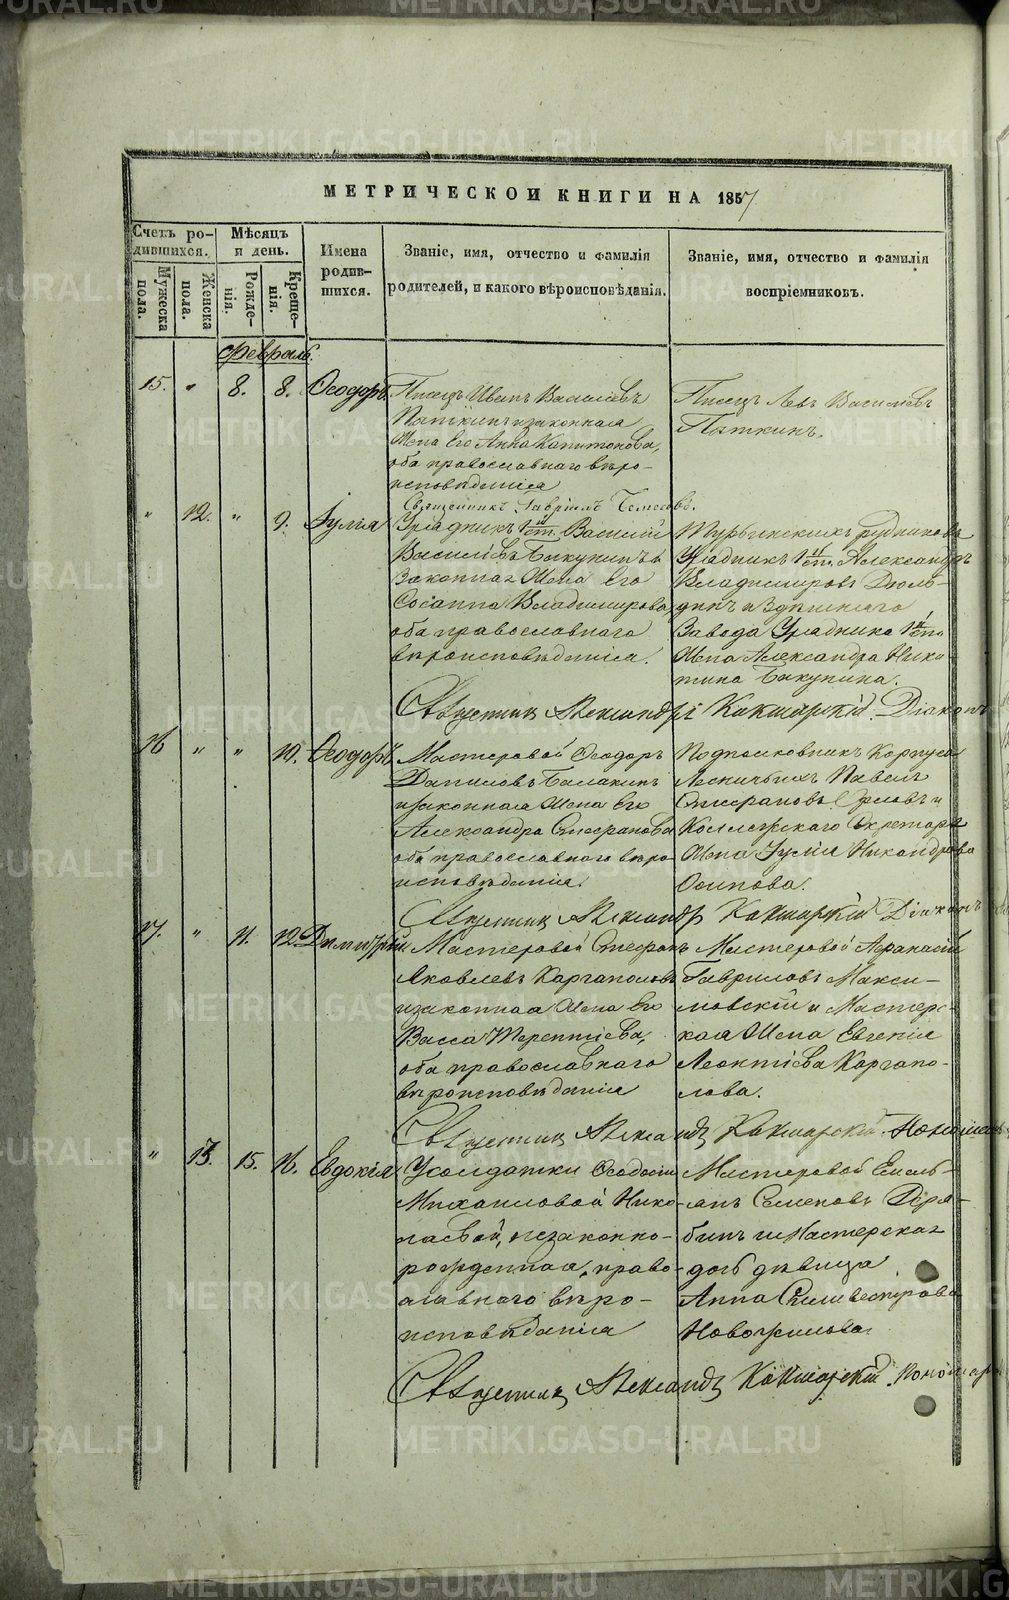 МЕТРИЧЕСКОЙ КНИГИ НА 1857
Счетъ родившихся.
Мѣсяцъ и день.
Имена родившихся.
Званіе, имя, отчество и фамилія родителей, и какого вѣроисповѣданія.
Званіе, имя, отчество и фамилія воспріемниковъ.
Мужеска пола.
Женска пола.
Рожденія.
Крещенія.
Февраль.
15. " 8. 8. Ѳеодоръ
Писецъ Иванъ Васильевъ
Пяткинъ и законная
Жена Его Анна Капитонова,
оба православнаго вѣро-
исповѣданія
Писецъ Левъ Васильевъ
Пяткинъ.
Священникъ Гавріилъ
" 12. " 9. Іулія
Урядникъ 1й ст. Василій
Васильевъ Бакунинъ и
Законная Жена Его
Сосанна Владимирова,
оба православнаго
вѣроисповѣданія.
Турьинскихъ рудниковъ
Урядникъ 1й ст. Александръ
Владимировъ Дюль-
динъ и
Завода Урядника 1й ст.
Жена Александра Ники-
тина Бакунина.
Священникъ Александръ Кокшарскій. Діаконъ
16 " " 10. Ѳеодоръ
Мастеровой Ѳеодоръ
Даниловъ Балакинъ
и законная Жена Его
Александра Стефанова
оба православнаго вѣро-
исповѣданія.
Подполковникъ Корпуса
Лесничьихъ Павелъ
Стефановъ и
Коллежскаго Секретаря
Жена Іулія Никандрова
Осипова.
Священникъ Александръ Кокшарскій Діаконъ
17. " 11. 12. Димитрій
Мастеровой Стефанъ
Яковлевъ Каргапольевъ
и законная Жена Его
Васса Терентіева,
оба православнаго
вѣроисповѣданія
Мастеровой Афанасій
Гавриловъ Макси-
мовскій и Мастерс-
кая Жена Евгенія
Леонтіева Каргапо-
лова.
Священникъ Александръ Кокшарскій.
" 13. 15. 16. Евдокія
У солдатки Ѳеодосіи
Михайловой Нико-
лаевой, незаконно-
рожденная, право-
славнаго вѣро-
исповѣданія
Мастеровой Емель-
янъ Семеновъ Деря-
бинъ и Мастерская
дочь девица
Анна Сильвестрова
Новожилова.
Священникъ Александръ Кокшарскій Пономарь
METRIKI.GASO-URAL.RU